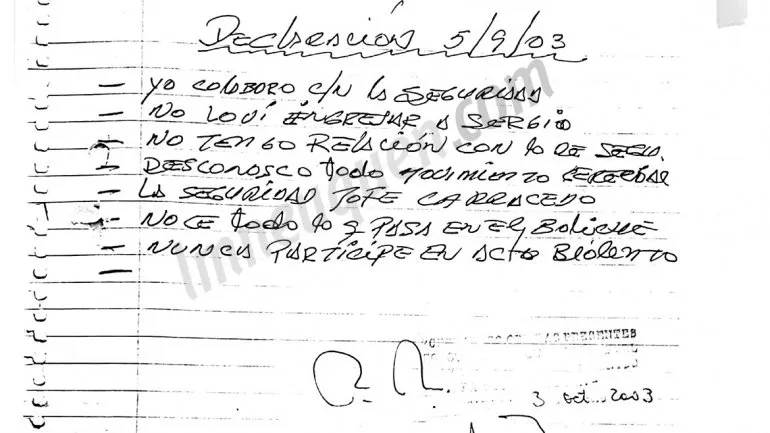 Declaración 5/9/03
- YO COLOBORO C/N LA SEGURIDAD
- NO LO VÍ INGRESAR A SERGIO
- NO TENGO RELACIÓN CON LO DE SEGU.
- DESCONOSCO todo MOVIMIENTO
- LA SEGURIDAD JOFE CARRACEDO
- NO CE todo lo q PASA EN EL BOLICHE
- NUNCA PARTÍCIPE EN ACTO BIOLENTO
-
lmneuquen.com
PRESENTES
3 oct 2003